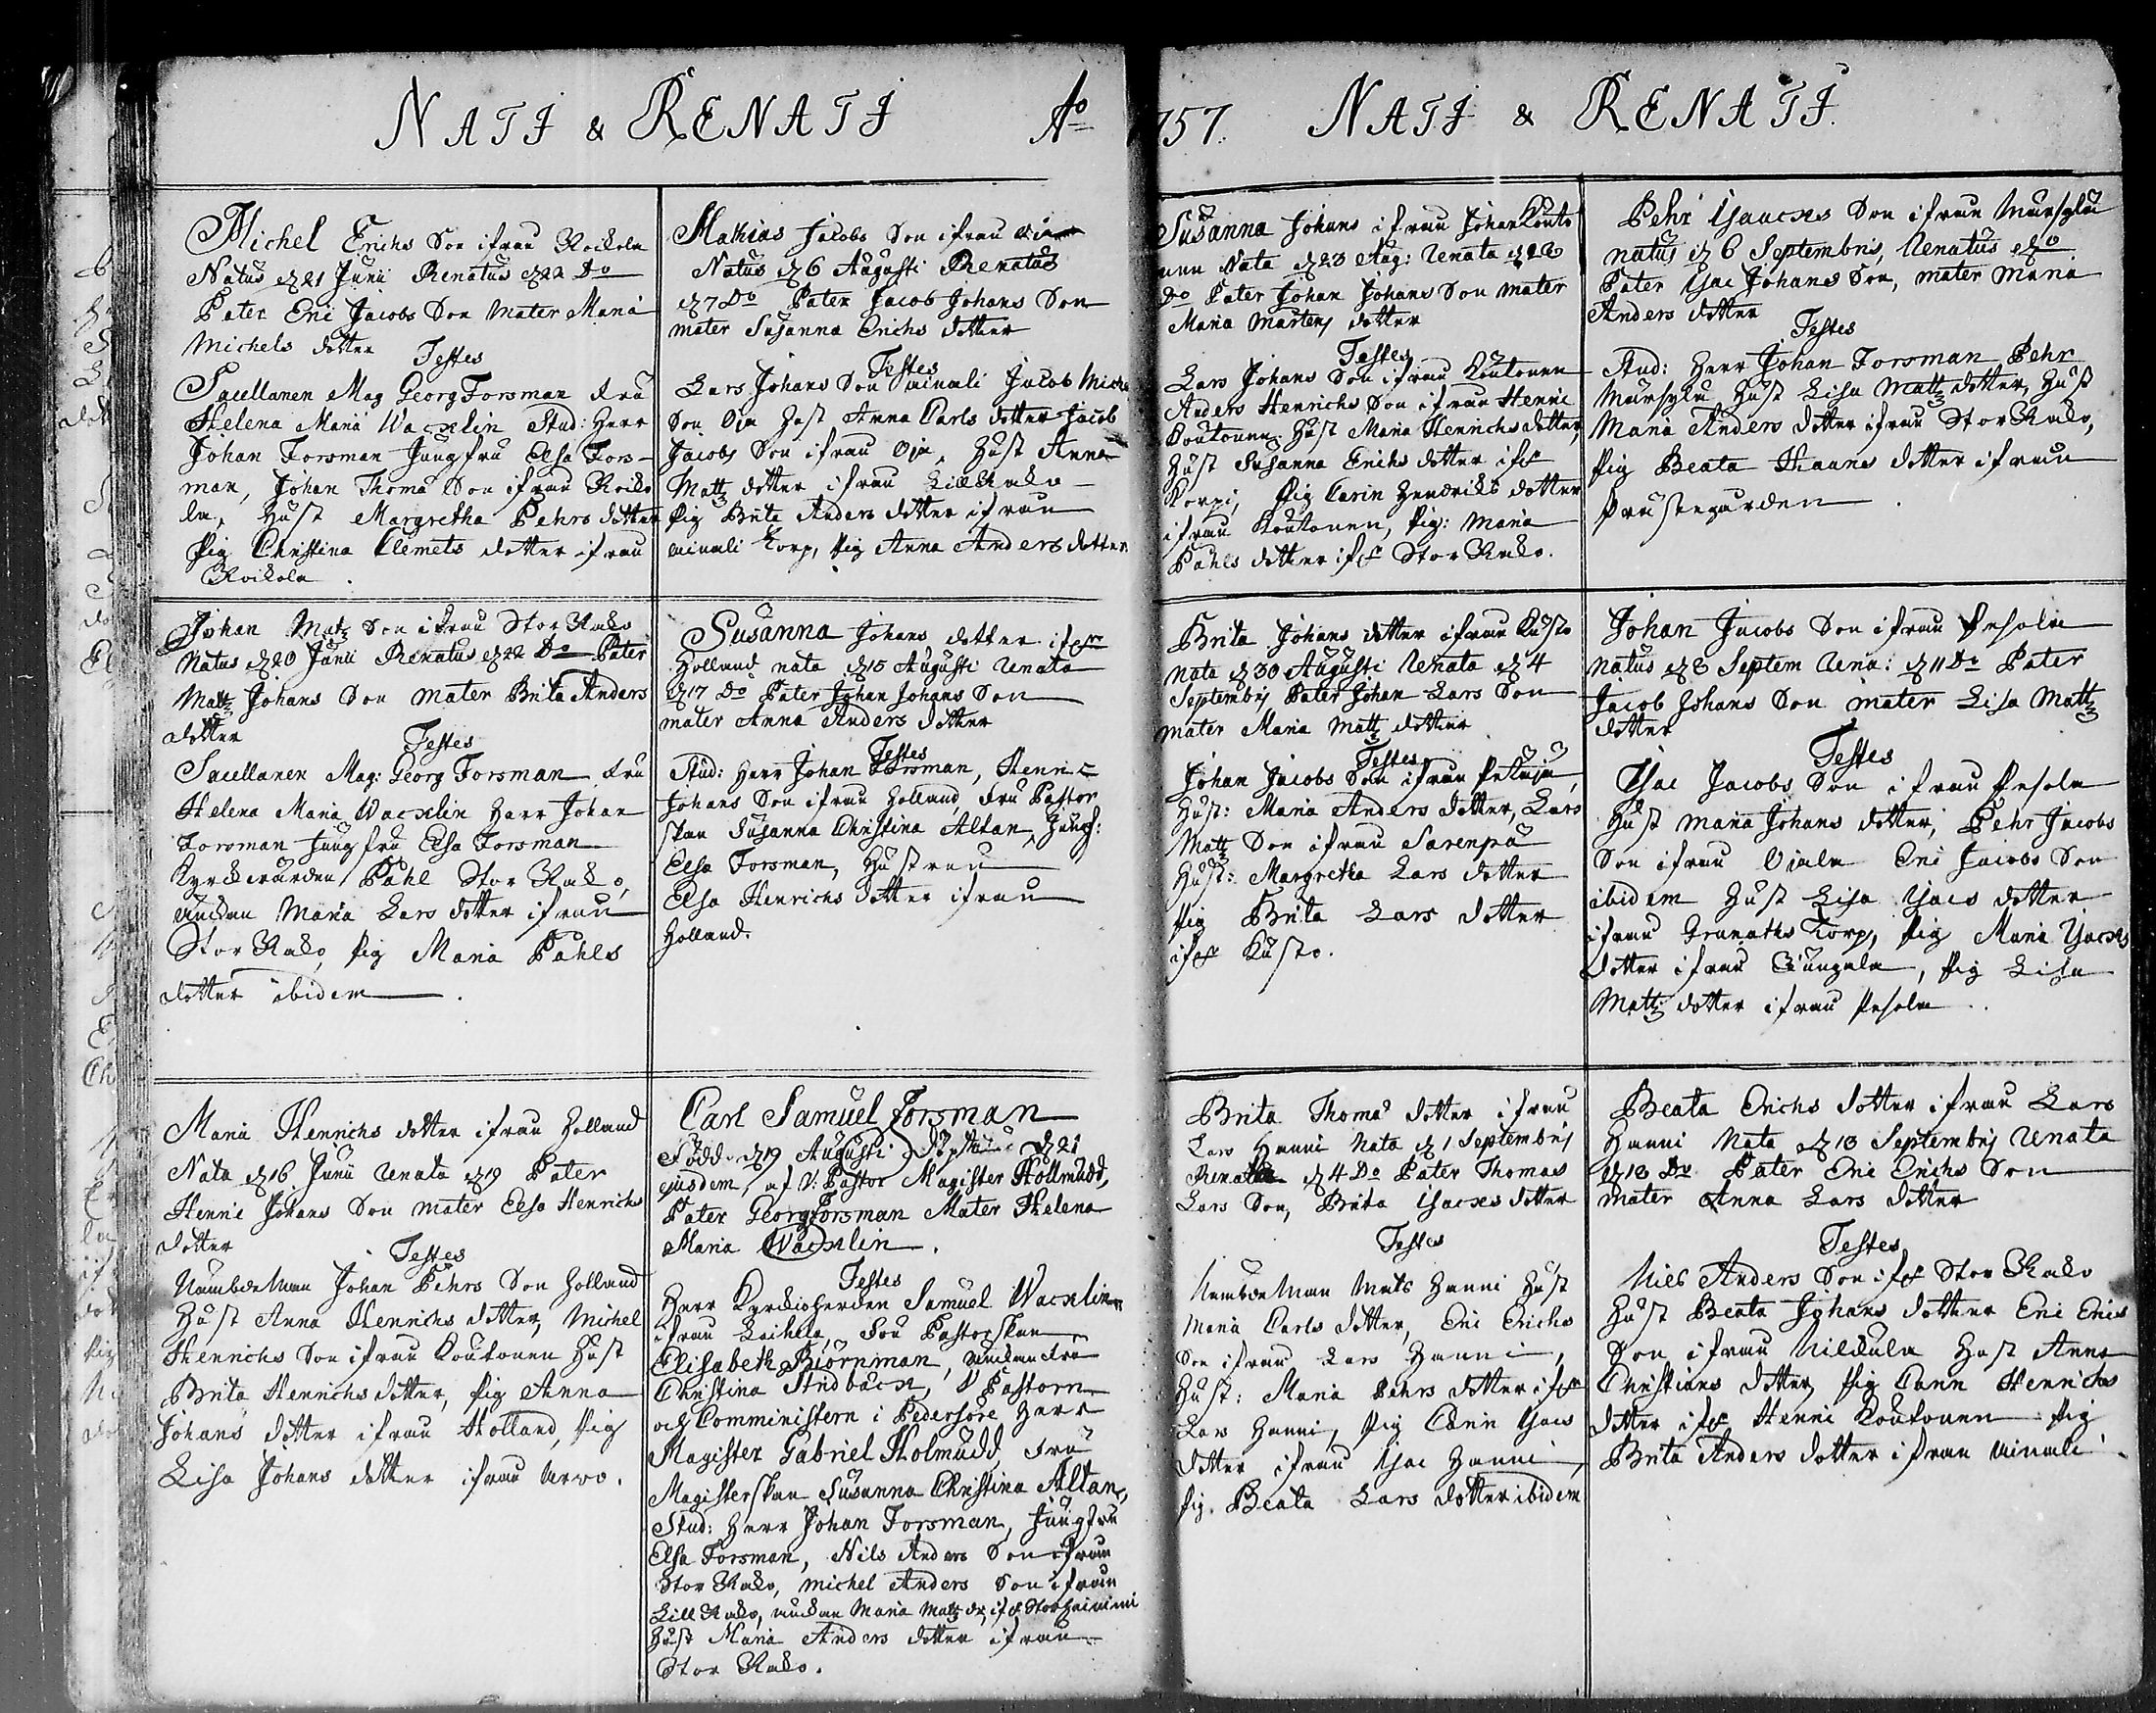 NATI & RENATI Ao
Michel Erichs Son ifrån Roikola
Natus d 21 Junii Renatus d 22 Do
Pater Eric Jacobs Son Mater Maria
Michels dotter
Testes
Sacellanen Mag Georg Forsman Fru
Helena Maria Wacklin Stud: Herr
Johan Forsman Jungfru Elsa Fors-
man, Johan Thomæ Son ifrån Roiko
la, Hust Margretha Pehrs dotter
Pig Christina Clemets dotter ifrån
Roikola
Johan Matz Son ifrån Stor Rako
Natus d 20 Junii Renatus d 22 Do Pater
Matz Johans Son Mater Brita Anders
dotter
Testes
Sacellanen Mag: Georg Forsman Fru
Helena Maria Wacklin Herr Johan
Forsman Jungfru Elsa Forsman
Kyrckevärden Påhl Stor Rako,
Änckan Maria Lars dotter ifrån
Stor Rako, Pig Maria Påhls
dotter ibidem
Maria Henrichs dotter ifrån Holland
Nata d 16 Junii Renata d 19 Pater
Henric Johans Son Mater Elsa Henrichs
dotter
Testes
Nämbdeman Johan Pehrs Son Holland
Hust Anna Henrichs dotter, Michel
Henrichs Son ifrån Koutonen Hust
Brita Henrichs dotter, Pig Anna
Johans dotter ifrån Holland, Pig
Lisa Johans dotter ifrån Arvo.
Mathias Jacobs Son ifrån
Natus d 6 Augusti Renatus
d 7 Do Pater Jacob Johans Son
mater Susanna Erichs dotter
Testes
Lars Johans Son Ainali Jacob Michels
Son Oja Hust Anna Carls dotter Jacob
Jacobs Son ifrån Oja, Hust Anna
Matz dotter ifrån Lill Rako
Pig Brita Anders dotter ifrån
Ainali Torp, Pig Anna Anders dotter
Susanna Johans dotter ifrån
Holland nata d 15 Augusti Renata
d 17 Do Pater Johan Johans Son
mater Anna Anders dotter
Testes
Stud: Herr Johan Forsman, Henric
Johans Son ifrån Holland, Fru Pastor
skan Susanna Christina Altan, Jungf:
Elsa Forsman, Hustrun
Elsa Henrichs dotter ifrån
Holland.
Carl Samuel Forsman
Född d 19 Augusti d 21
ejusdem, af V: Pastor Magister Hollmudd,
Pater Georg Forsman Mater Helena
Maria Wacklin.
Testes
Herr Kyrckioherden Samuel Wacklin
ifrån Laihela, Fru Pastorskan
Elisabeth Björnman, änckan Fru
Christina Stridbäck, V Pastorn
och Comministern i Pedersöre Herr
Magister Gabriel Holmudd, Fru
Magisterskan Susanna Christina Altan,
Stud: Herr Johan Forsman, Jungfru
Elsa Forsman, Nils Anders Son ifrån
Stor Rako, Michel Anders Son ifrån
Lill Rako, änckan Maria Matz dr,
Hust Maria Anders dotter ifrån
Stor Rako.
1757. NATI & RENATI.
Susanna Johans ifrån Johan Kouto
nen Nata d 23 Aug: Renata d 26
Do Pater Johan Johans Son mater
Maria Mårtens dotter
Testes
Lars Johans Son ifrån Koutonen
Anders Henrichs Son ifrån Henric
Koutonen Hust Maria Henrichs dotter,
Hust Susanna Erichs dotter ifrån
Korpi, Pig Carin Hendrichs dotter
ifrån Koutonen, Pig: Maria
Påhls dotter ifrån Stor Rako.
Brita Johans dotter ifrån Kusto
Nata d 30 Augusti Renata d 4
Septembris Pater Johan Lars Son
mater Maria Matz dotter
Testes
Johan Jacobs Son ifrån
Hust: Maria Anders dotter, Lars
Matz Son ifrån Sarenpä
Hust: Margretha Lars dotter
Pig Brita Lars dotter
ifrån Kusto.
Brita Thomæ dotter ifrån
Lars Hanni Nata d 1 Septembris
Renata d 4 Do Pater Thomas
Lars Son, Brita Isacks dotter
Testes
Nämbdeman Mats Hanni Hust
Maria Carls dotter, Eric Erichs
Son ifrån Lars Hanni,
Hust: Maria Pehrs dotter ifrån
Lars Hanni, Pig Carin Isacs
dotter ifrån Isac Hanni,
Pig. Beata Lars dotter ibidem
Pehr Isacks Son ifrån Mursula
natus d 6 Septembris, Renatus
Pater Isac Johans Son, mater Maria
Anders dotter
Testes
Stud: Herr Johan Forsman Pehr
Mursula Hust Lisa Matz dotter, Hust
Maria Anders dotter ifrån Stor Rako,
Pig Beata Hanns dotter ifrån
Prästegården
Johan Jacobs Son ifrån Pesola
Natus d 8 Septem Rena: d 11 Do Pater
Jacob Johans Son mater Lisa Matz
dotter
Testes
Isac Jacobs Son ifrån Pesola
Hust Maria Johans dotter, Pehr Jacobs
Son ifrån Ojala Eric Jacobs Son
ibidem Hust Lisa Isacs dotter
ifrån Granaths Torp, Pig Maria Isacks
dotter ifrån, Pig Lisa
Matz dotter ifrån Pesola
Beata Erichs dotter ifrån Lars
Hanni Nata d 10 Septembris Renata
d 18 Do Pater Eric Erichs Son
mater Anna Lars dotter
Testes
Nils Anders Son ifrån Stor Rako
Hust Beata Johans dotter Eric Erics
Son ifrån Nikkula Hust Anna
Christians dotter, Pig Carin Henrichs
dotter ifrån Henric Koutonen Pig
Brita Anders dotter ifrån Ainali